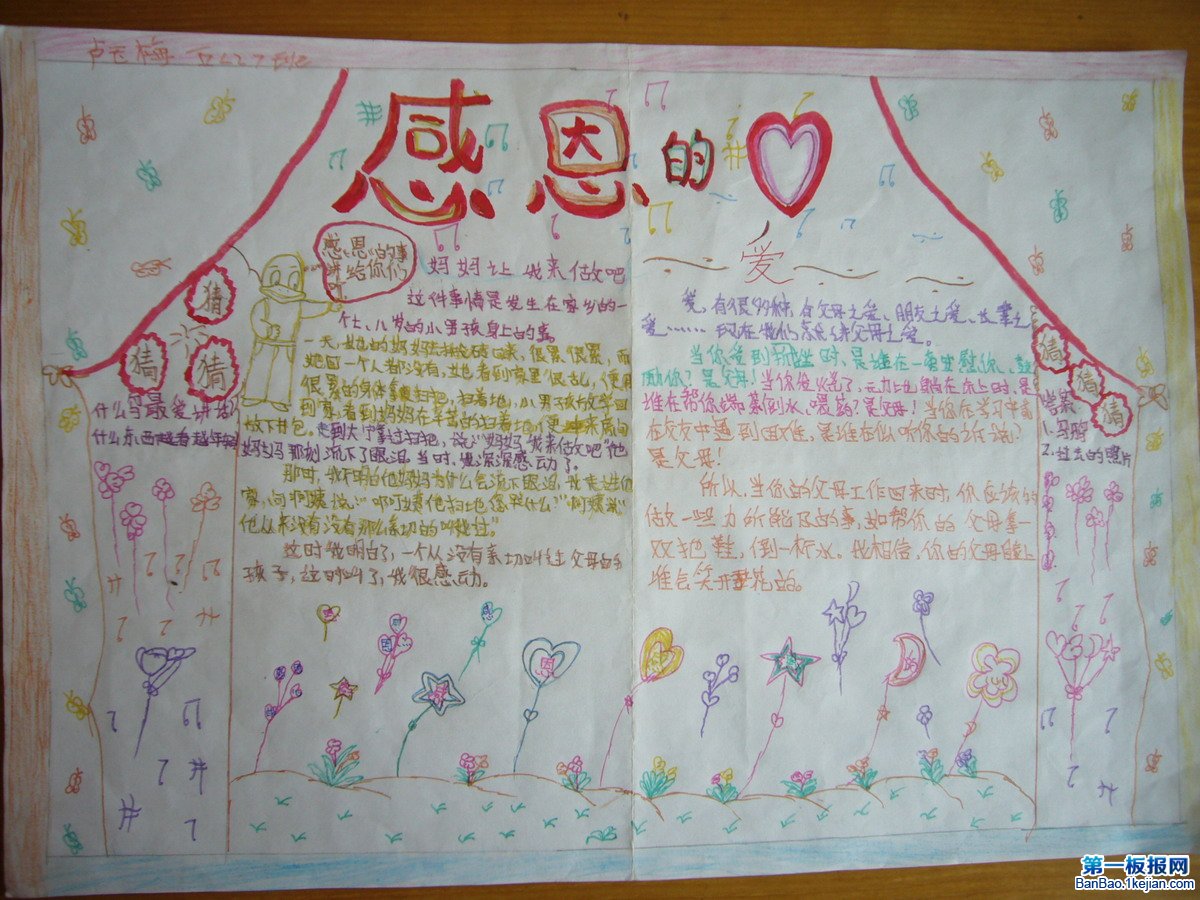 感恩的
感恩的事
讲给你们
妈妈让我来做吧
这件事情是发生在家乡的一
个七、八岁的小男孩身上的事。
一天,她的妈妈
回来,很累、很累,而
她回一个人都没有,她看到家里很乱,便用
很累的身体拿扫把,扫着地,小男孩放学回
到家,看到妈妈在辛苦的扫着地,便冲来房间
放下书包。走到大厅拿过扫把,说:“妈妈我来做吧”他
妈妈那刻流下了眼泪,当时,我深深感动了。
那时,我不明白他妈妈为什么会流下眼泪,我走进他
家,问阿姨说:“
他从来没有没有那么亲切的叫我过。”
这时我明白了,一个从没有亲切叫过父母的
孩子,这时叫了,我很感动。
爱
爱,有很多种,有父母之爱、朋友之爱、
之
爱……现在我们就来讲父母之爱。
当你受到
时,是谁在一旁安慰你、鼓
励你?是父母!当你发烧了,无力地躺在床上时,是
谁在帮你端茶倒水、喂药?是父母!当你在学习中
在
中遇到困难,是谁在
听你的
?
是父母!
所以,当你的父母工作回来时,你应该的
做一些力所能及的事,如帮你的父母拿一
双拖鞋,倒一杯水。我相信,你的父母
谁会笑开花的。
猜
猜
猜
什么马最爱讲话
什么东西越看越年轻
猜
猜
猜
答案
1.马鸭
2.过去的照片
第一板报网
BanBao.1kejian.com